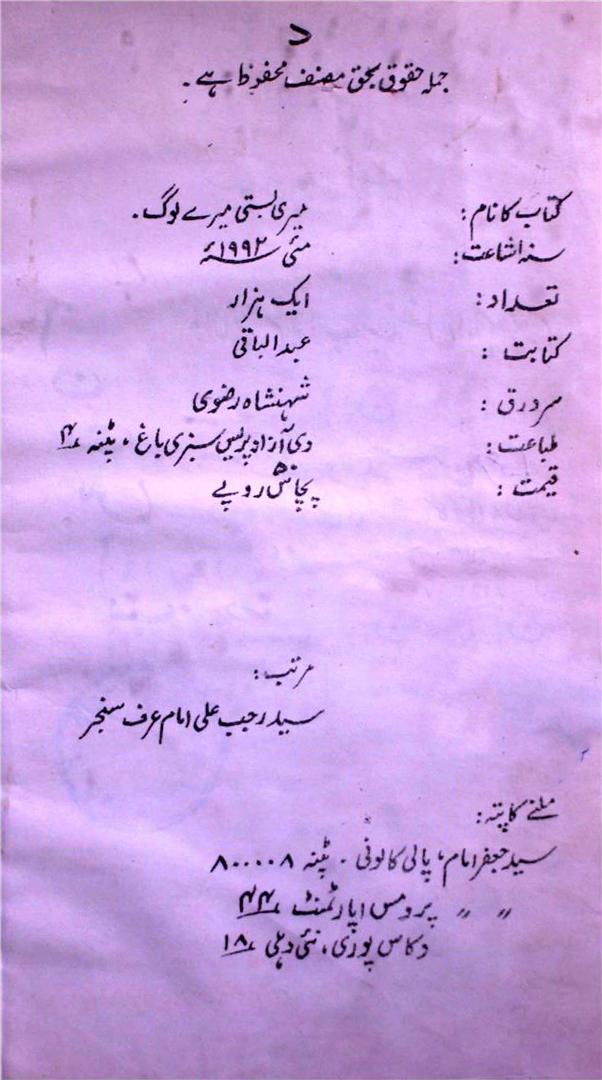 جملہ حقوق بحق مصنف محفوظ ہے۔
کتاب کا نام: میری بستی میرے لوگ۔
سنہ اشاعت: مئی ۱۹۹۲ء
تعداد: ایک ہزار
کتابت: عبدالباقی
سرورق: شہنشاہ رضوی
طباعت: دی آزاد پریس سبزی باغ، پٹنہ ۴
قیمت: پچاس روپے
مرتب:
سید رجب علی امام عرف سنجر
ملنے کا پتہ:
سید جعفر امام، پالی کالونی۔ پٹنہ ۸۰۰۰۰۸
〃 〃 پرومس اپارٹمنٹ، ۴۴
وکاس پوری، نئی دہلی، ۱۸